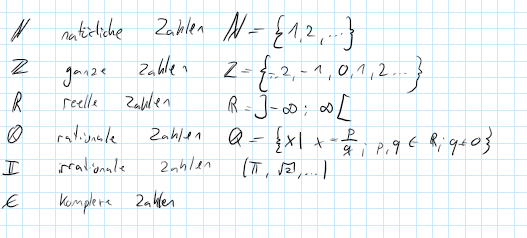 ℕ natürliche Zahlen ℕ = {1,2,...}
ℤ ganze Zahlen ℤ = {..2,-1,0,1,2...}
ℝ reelle Zahlen ℝ = ]-∞; ∞[
ℚ rationale Zahlen ℚ = {x| x = p/q; p,q ∈ R; q≠0}
𝕀 irrationale Zahlen (π, √2,...)
ϵ komplexe Zahlen